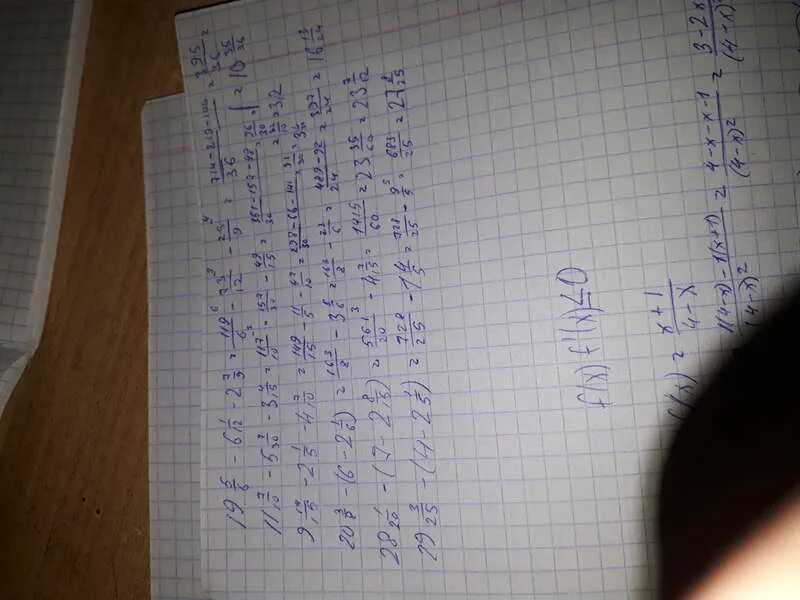 19 5/6 - 6 1/12 - 2 7/9 = 119/6 - 73/12 - 25/9 = (714-219-100)/36 = 395/36 = 10 35/36
11 7/10 - 5 7/30 - 3 4/15 = 117/10 - 157/30 - 49/15 = (351-157-98)/30 = 96/30 = 32/10 = 3,2
9 14/15 - 2 1/5 - 4 7/10 = 149/15 - 11/5 - 47/10 = (298-66-141)/30 = 91/30 = 3 1/30
20 3/8 - (6 - 2 1/6) = 163/8 - 3 5/6 = 163/8 - 23/6 = (489-92)/24 = 397/24 = 16 13/24
28 1/20 - (7 - 2 8/15) = 561/20 - 4 7/15 = 1415/60 = 23 35/60 = 23 7/12
29 3/25 - (4 - 2 1/5) = 728/25 - 1 4/5 = 728/25 - 9/5 = 683/25 = 27 8/25
f(x) f'(x) ≤ 0
f(x) = (x+1)/(4-x)
= (1(4-x) - 1(x+1))/(4-x)² = (4-x-x-1)/(4-x)² = (3-2x)/(4-x)²